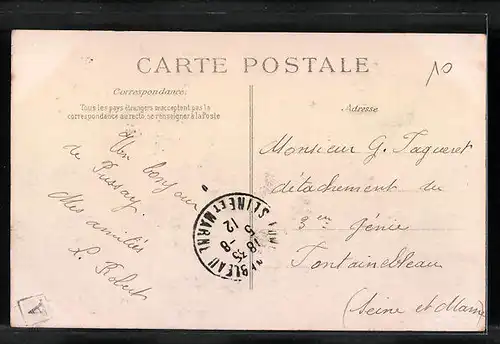 CARTE POSTALE
10
Correspondance
Tous les pays étrangers n'acceptent pas la
correspondance au recto, se renseigner à la Poste
Adresse
Un bonjour
de Pussay.
Mes amitiés
L. Robert
Monsieur G. Tagueret
détachement du
3em génie
Fontainebleau
(Seine et Marne
SEINE ET MARNE
18 -8
5 12
A